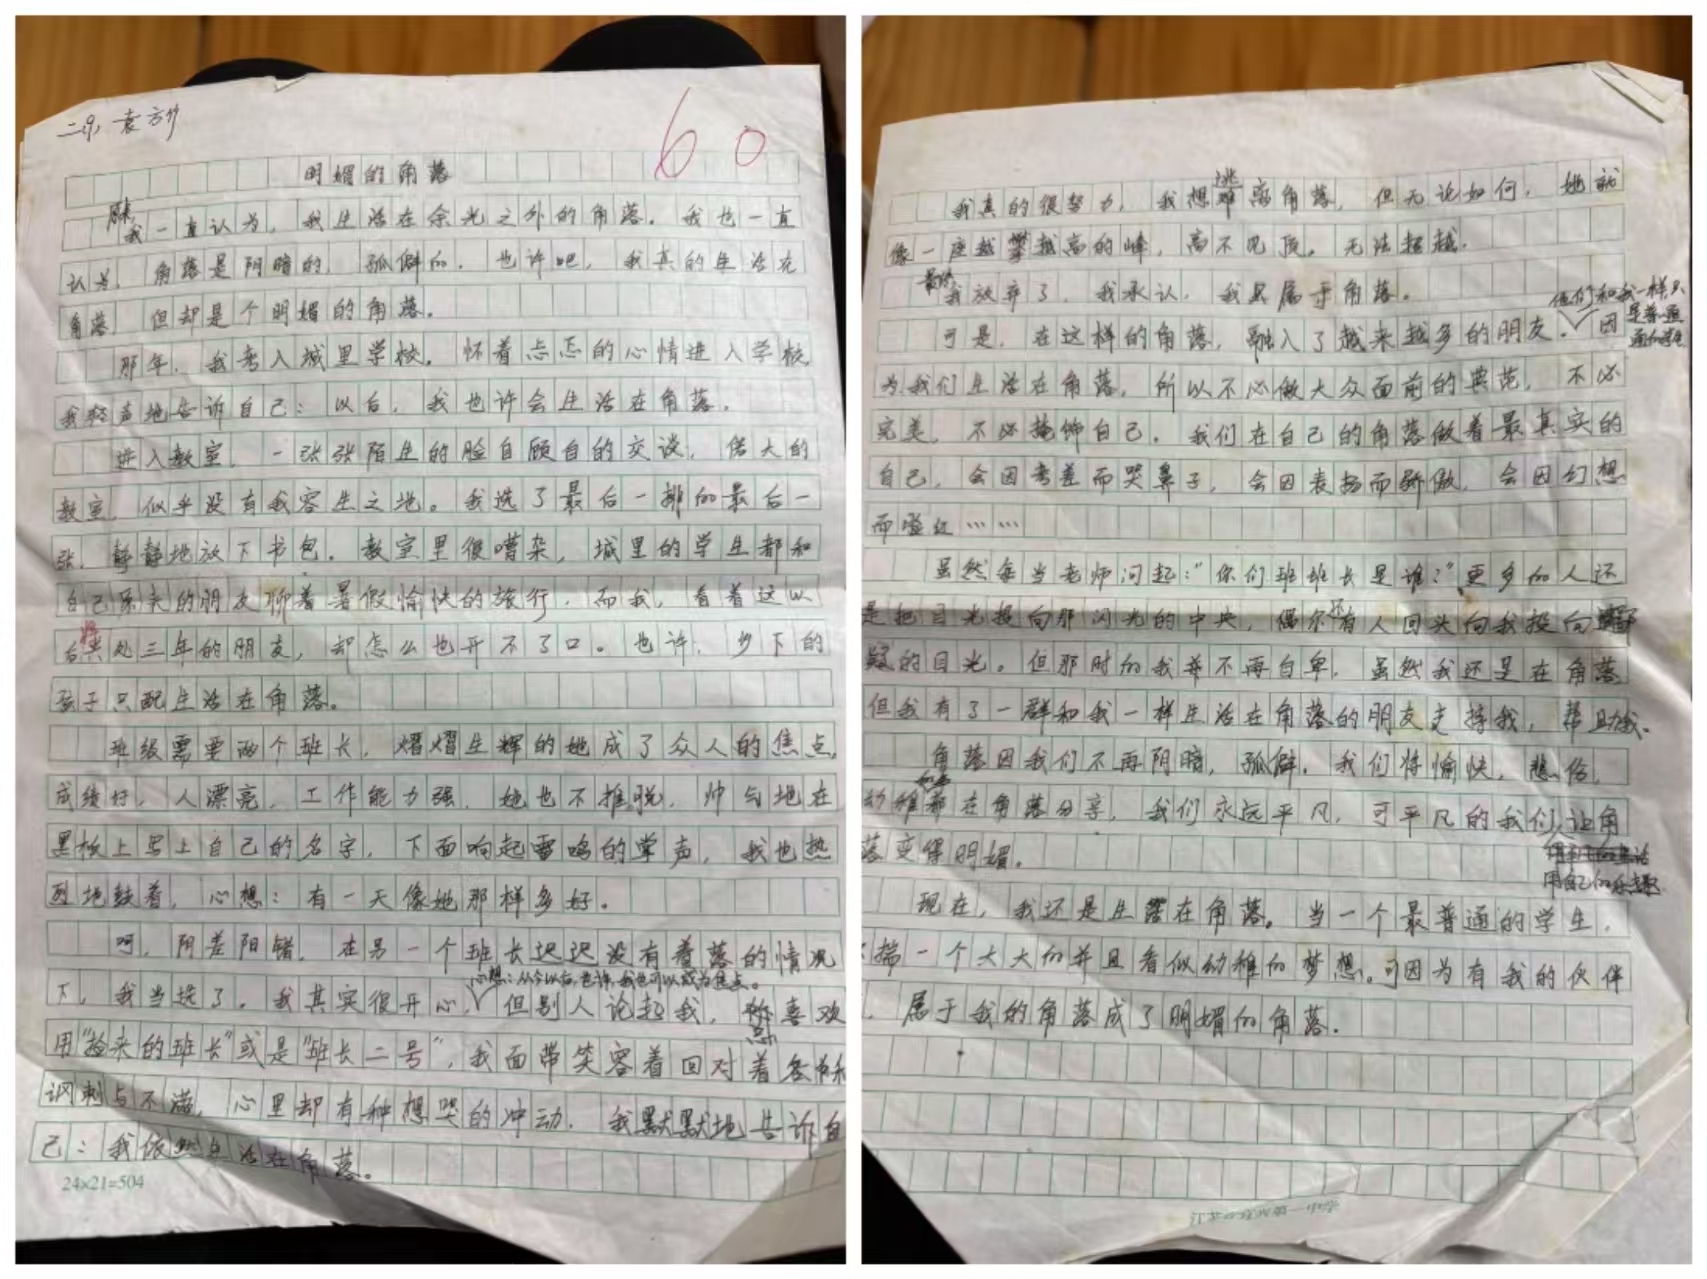 袁方
60
明媚的角落
原来,我一直认为,我生活在余光之外的角落。我也一直
认为,角落是阴暗的,孤僻的。也许吧,我真的生活在
角落,但却是个明媚的角落。
那年,我考入城里学校。怀着忐忑的心情进入学校
我轻声地告诉自己:以后,我也许会生活在角落。
进入教室,一张张陌生的脸自顾自的交谈,偌大的
教室,似乎没有我容生之地。我选了最后一排的最后一
张,静静地放下书包。教室里很嘈杂,城里的学生都和
自己原来的朋友聊着暑假愉快的旅行,而我,看着这以
后将共处三年的朋友,却怎么也开不了口。也许,乡下的
孩子只配生活在角落。
班级需要两个班长,熠熠生辉的她成了众人的焦点,
成绩好,人漂亮,工作能力强,她也不推脱,帅气地在
黑板上写上自己的名字,下面响起雷鸣的掌声,我也热
烈地鼓着,心想:有一天像她那样多好。
呵,阴差阳错,在另一个班长迟迟没有着落的情况
心想:从今以后,也许,我也可以成为焦点。
下,我当选了。我其实很开心,但别人论起我,总喜欢
用“捡来的班长”或是“班长二号”,我面带笑容着回对着各种
讽刺与不满,心里却有种想哭的冲动,我默默地告诉自
己:我依然生活在角落。
24×21=504
我真的很努力,我想逃离角落,但无论如何,她就
像一座越攀越高的峰,高不见顶。无法超越。
最终我放弃了,我承认,我只属于角落。
他们和我一样只
是普通
可是,在这样的角落,融入了越来越多的朋友。因
为我们生活在角落,所以不必做大众面前的典范,不必
完美,不必掩饰自己。我们在自己的角落做着最真实的
自己,会因考差而哭鼻子,会因表扬而骄傲,会因幻想
而脸红……
虽然每当老师问起:“你们班班长是谁?”更多的人还
是把目光投向那闪光的中央,偶尔还有人回头向我投向
疑的目光。但那时的我并不再自卑,虽然我还是在角落
但我有了一群和我一样生活在角落的朋友支持我,帮助我。
角落因我们不再阴暗,孤僻。我们将愉快,悲伤,
幼稚都在角落分享,我们永远平凡,可平凡的我们让角
落变得明媚。
用自己的乐趣
现在,我还是生活在角落。当一个最普通的学生,
揣一个大大的并且看似幼稚的梦想。可因为有我的伙伴
,属于我的角落成了明媚的角落。